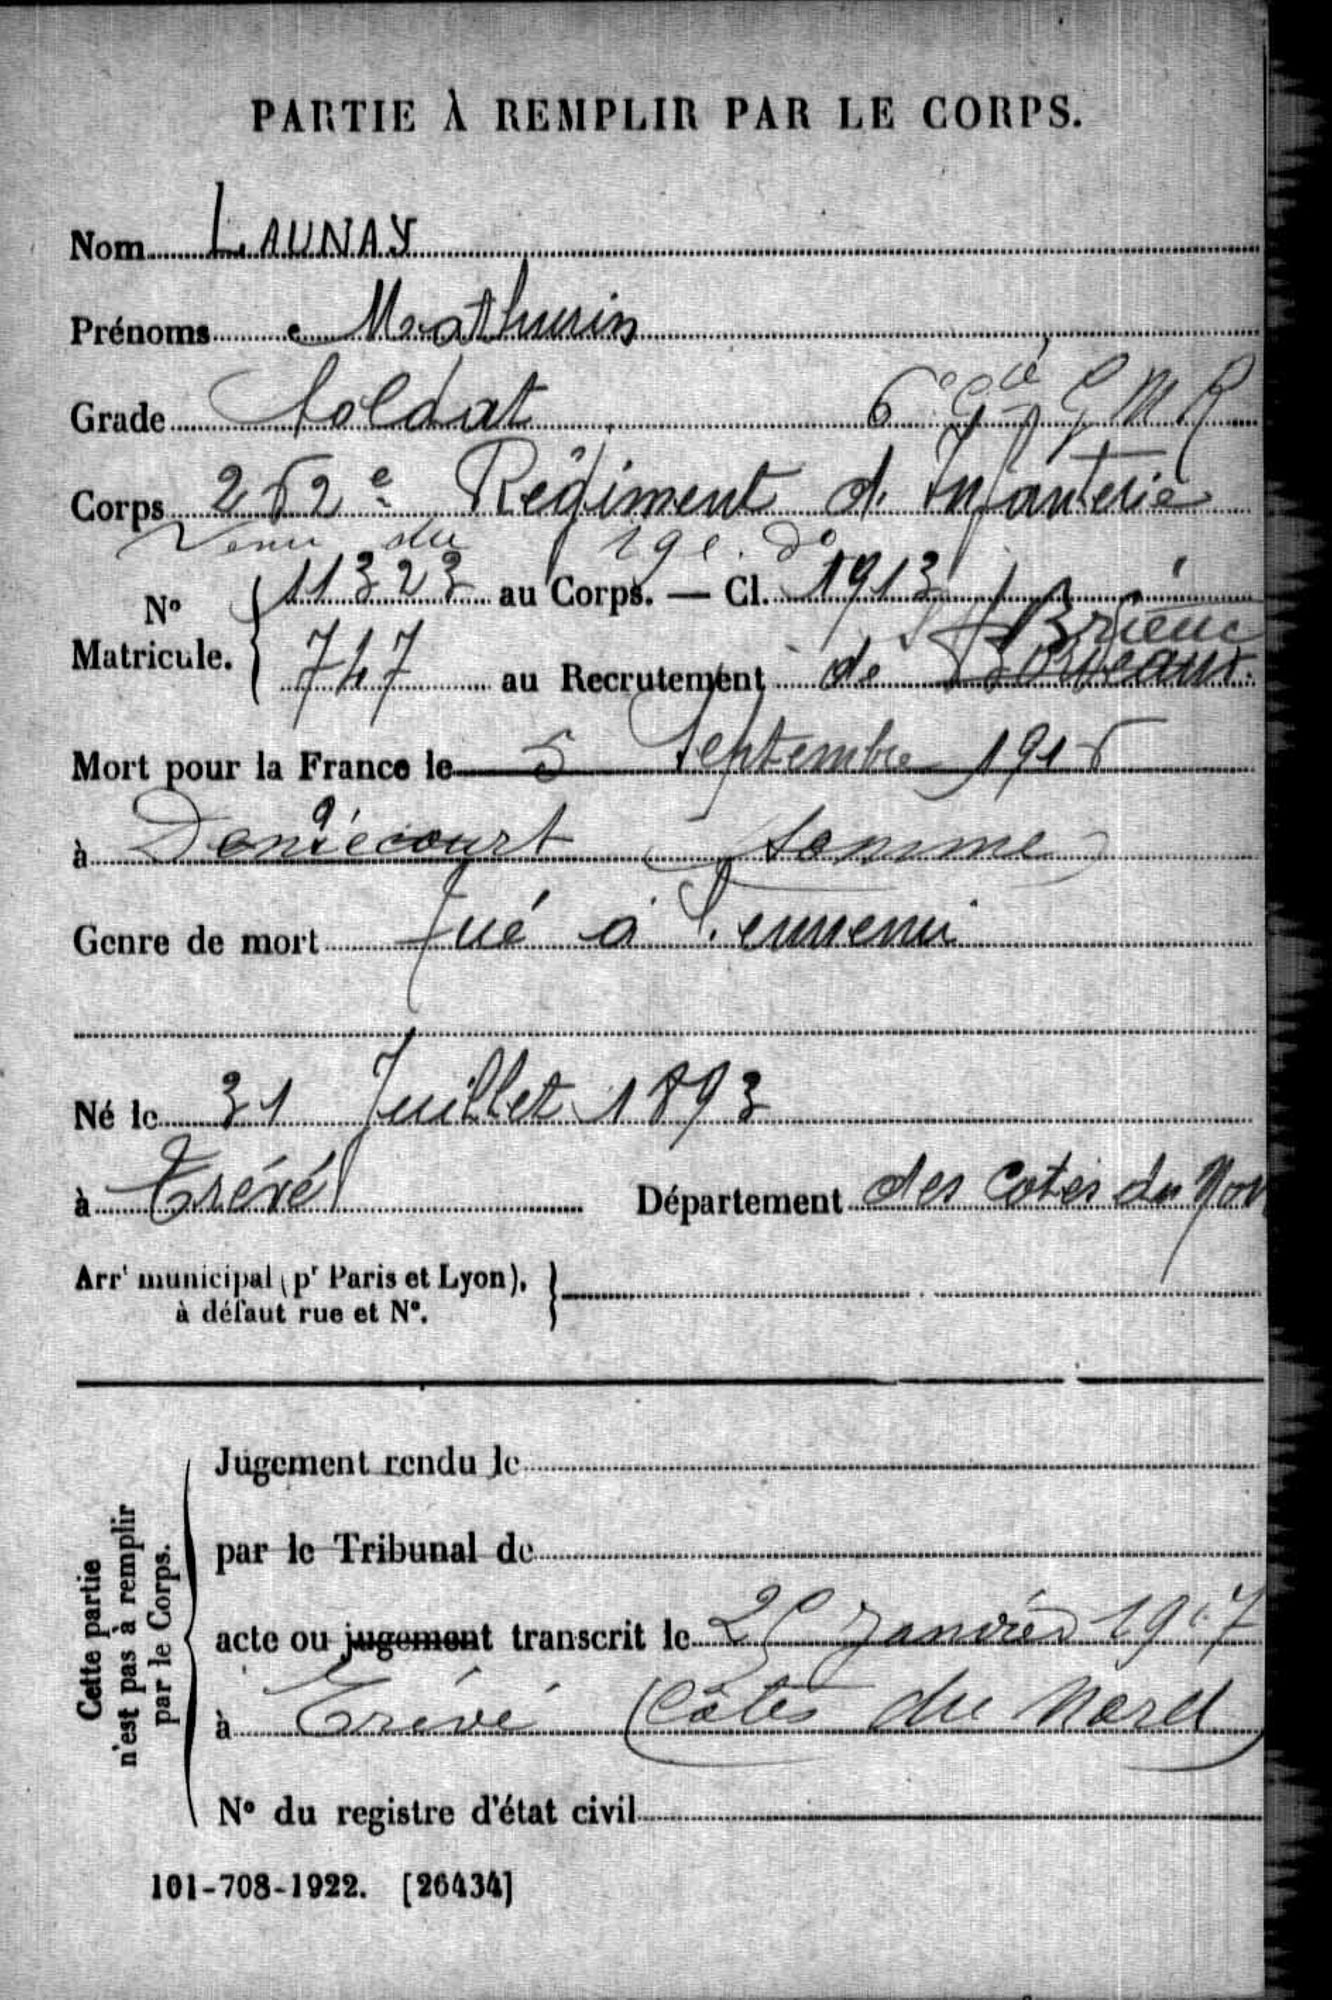 PARTIE À REMPLIR PAR LE CORPS.
Nom LAUNAY
Prénoms Mathurin
Grade Soldat 6e Cie G M R
Corps 262e Régiment d'Infanterie
Venu du 19e do
No Matricule. 11323 au Corps. — Cl. 1913
St Brieuc
747 au Recrutement de Bordeaux
Mort pour la France le 5 Septembre 1916
à Deniécourt (Somme)
Genre de mort Tué à l'ennemi
Né le 31 Juillet 1893
à Trévé Département des Cotes du Nor
Arrt municipal (pr Paris et Lyon),
à défaut rue et No.
Cette partie n'est pas à remplir par le Corps.
Jugement rendu le
par le Tribunal de
acte ou jugement transcrit le 25 Janvier 1917
à Trévé (Côtes du Nord)
No du registre d'état civil
101-708-1922. [26434]